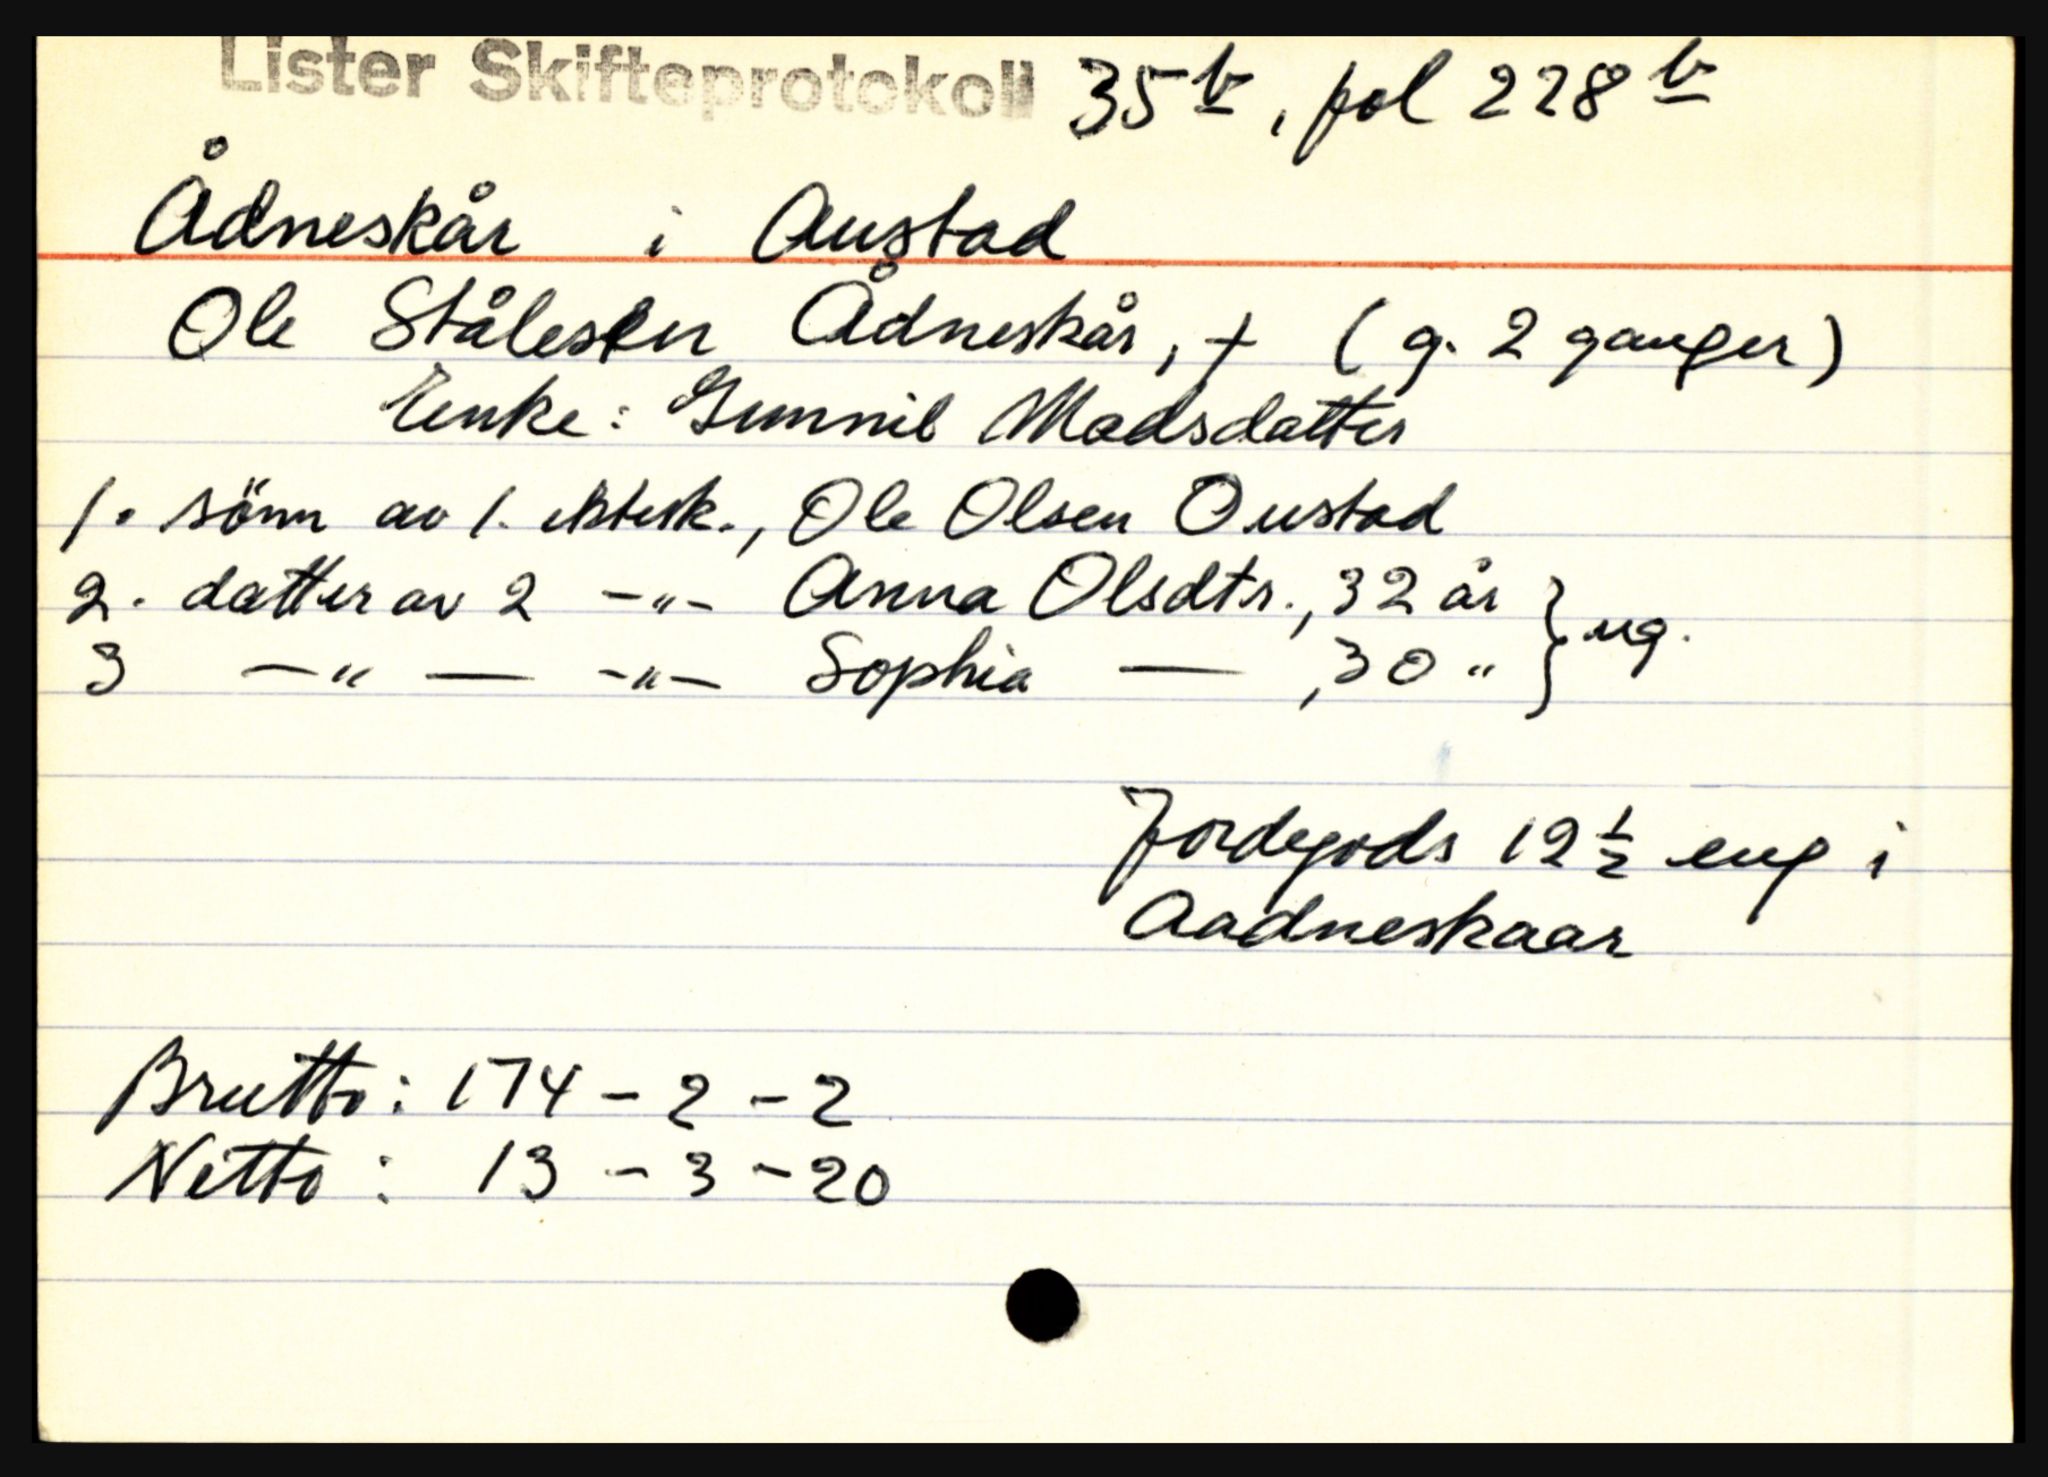 Lister Skifteprotokoll 35 b, fol 228 b
Ådneskår i Austad
Ole Stålesen Ådneskår, + (g. 2 ganger)
Enke: Gunnil Madsdatter
1. sönn av 1. ektesk., Ole Olsen Oustad
2. datter av 2 -"- Anna Olsdtr., 32 år } ug.
3 -"- -"- Sophia — , 30 "
Jordegods 12 1/2 eng i
Aadneskaar
Brutto: 174 - 2 - 2
Netto: 13 - 3 - 20